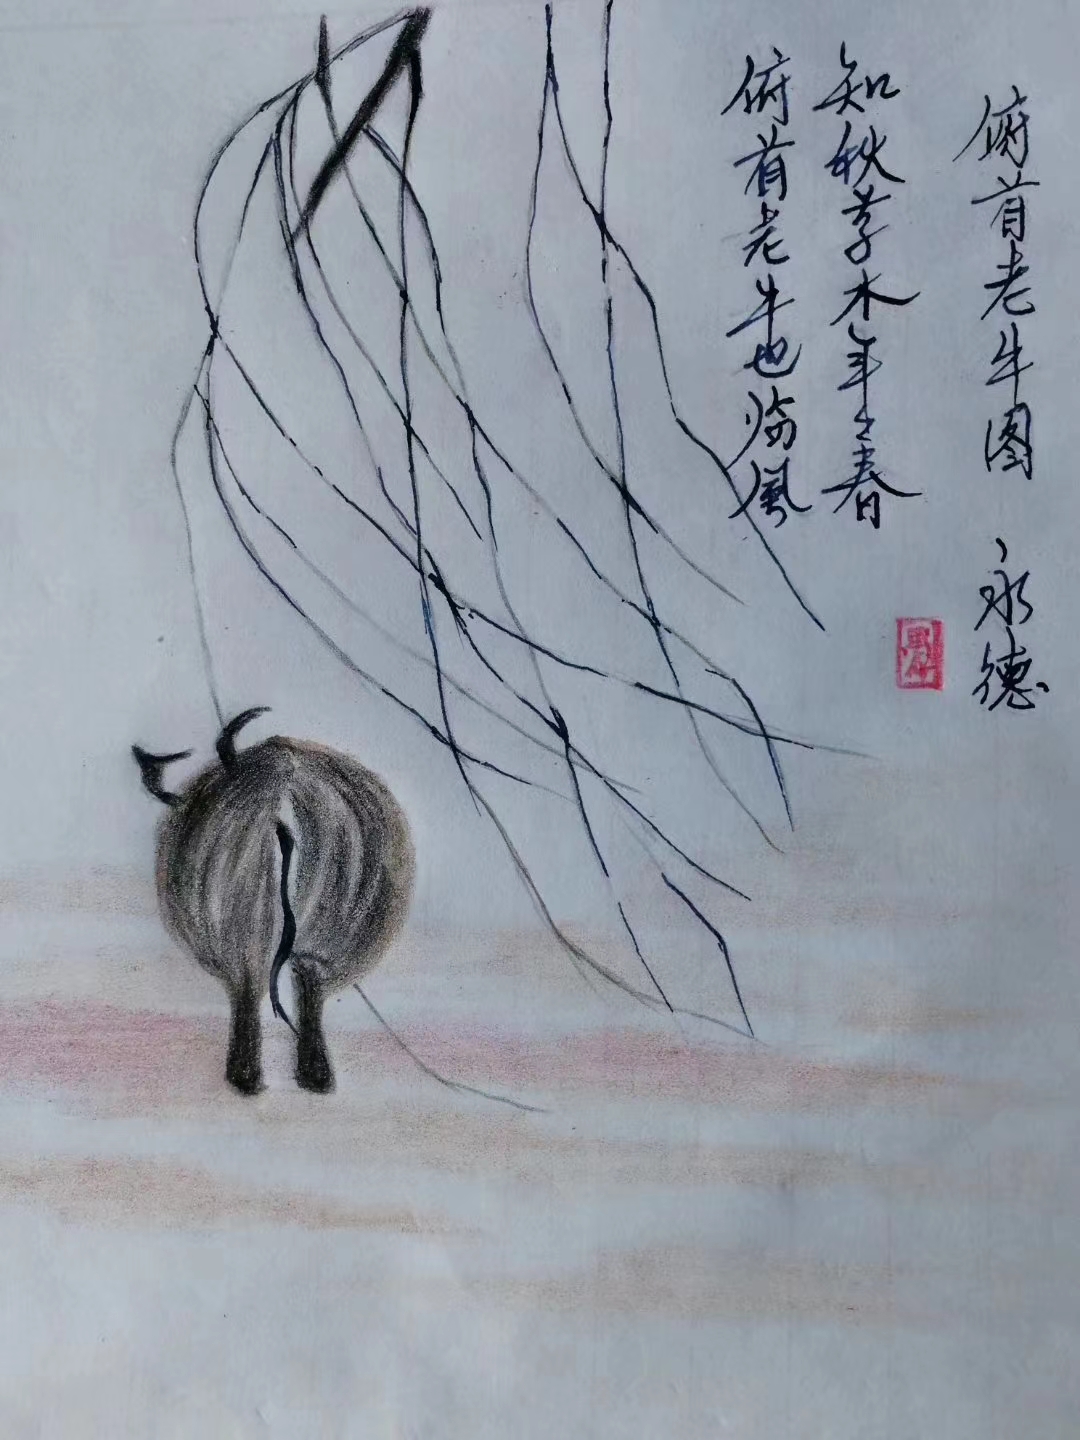 俯首老牛图 永德
知秋草木年年春
俯首老牛也临风